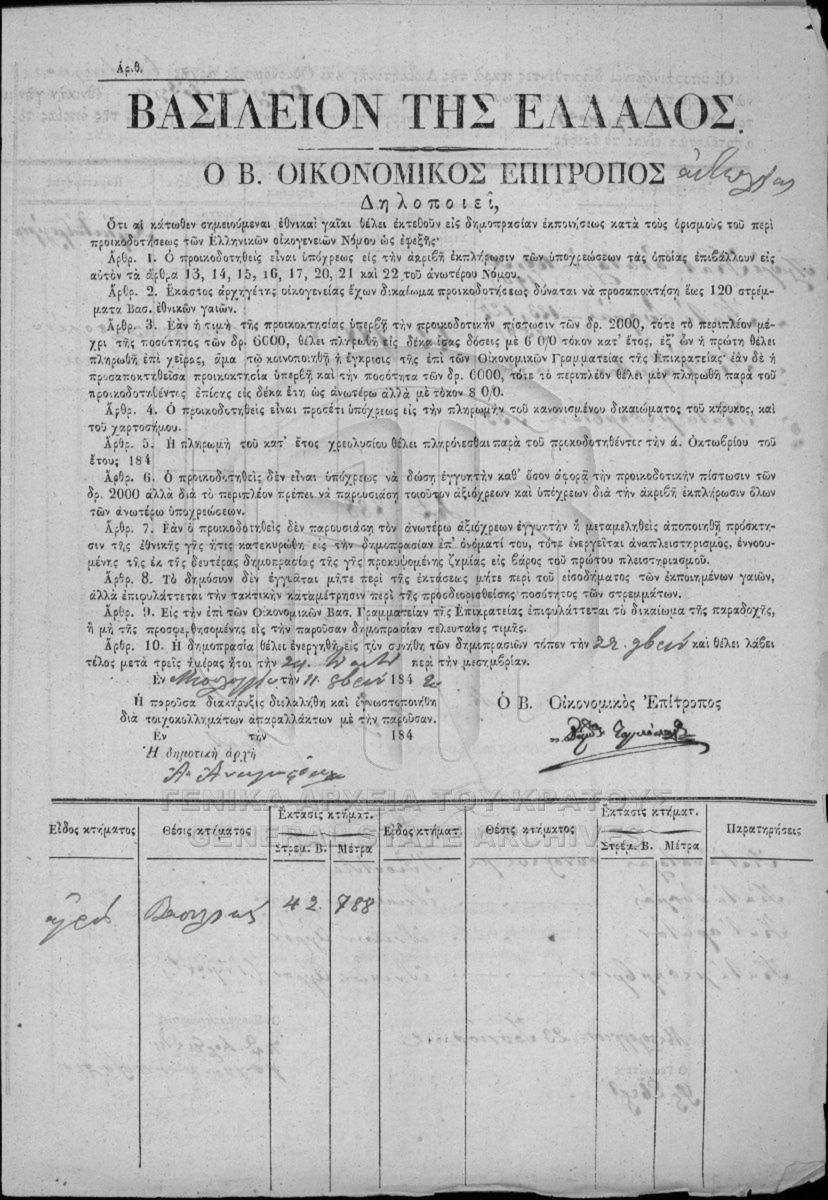 Ἀριθ.
ΒΑΣΙΛΕΙΟΝ ΤΗΣ ΕΛΛΑΔΟΣ.
Ο Β. ΟΙΚΟΝΟΜΙΚΟΣ ΕΠΙΤΡΟΠΟΣ
Δηλοποιεῖ,
Ὅτι αἱ κάτωθεν σημειούμεναι ἐθνικαὶ γαῖαι θέλει ἐκτεθοῦν εἰς δημοπρασίαν ἐκποιήσεως κατὰ τοὺς ὁρισμοὺς τοῦ περὶ
προικοδοτήσεως τῶν Ἑλληνικῶν οἰκογενειῶν Νόμου ὡς ἐφεξῆς·
Ἄρθρ. 1. Ὁ προικοδοτηθεὶς εἶναι ὑπόχρεως εἰς τὴν ἀκριβῆ ἐκπλήρωσιν τῶν ὑποχρεώσεων τὰς ὁποίας ἐπιβάλλουν εἰς
αὐτὸν τὰ ἄρθρα 13, 14, 15, 16, 17, 20, 21 καὶ 22 τοῦ ἀνωτέρου Νόμου.
Ἄρθρ. 2. Ἕκαστος ἀρχηγέτης οἰκογενείας ἔχων δικαίωμα προικοδοτήσεως δύναται νὰ προσαποκτήσῃ ἕως 120 στρέμ-
ματα Βασ. ἐθνικῶν γαιῶν.
Ἄρθρ. 3. Ἐὰν ἡ τιμὴ τῆς προικοκτησίας ὑπερβῇ τὴν προικοδοτικὴν πίστωσιν τῶν δρ. 2000, τότε τὸ περιπλέον μέ-
χρι τῆς ποσότητος τῶν δρ. 6000, θέλει πληρωθῆ εἰς δέκα ἴσας δόσεις μὲ 6 0/0 τόκον κατ' ἔτος, ἐξ' ὧν ἡ πρώτη θέλει
πληρωθῆ ἐπὶ χεῖρας, ἅμα τῷ κοινοποιηθῇ ἡ ἔγκρισις τῆς ἐπὶ τῶν Οἰκονομικῶν Γραμματείας τῆς Ἐπικρατείας· ἐὰν δὲ ἡ
προσαποκτηθεῖσα προικοκτησία ὑπερβῇ καὶ τὴν ποσότητα τῶν δρ. 6000, τότε τὸ περιπλέον θέλει μὲν πληρωθῆ παρὰ τοῦ
προικοδοτηθέντος ἐπίσης εἰς δέκα ἔτη ὡς ἀνωτέρω ἀλλὰ μὲ τόκον 8 0/0.
Ἄρθρ. 4. Ὁ προικοδοτηθεὶς εἶναι προσέτι ὑπόχρεως εἰς τὴν πληρωμὴν τοῦ κανονισμένου δικαιώματος τοῦ κήρυκος, καὶ
τοῦ χαρτοσήμου.
Ἄρθρ. 5. Ἡ πληρωμὴ τοῦ κατ' ἔτος χρεολυσίου θέλει πληρόνεσθαι παρὰ τοῦ προκοδοτηθέντος τὴν ά. Ὀκτωβρίου τοῦ
ἔτους 184
Ἄρθρ. 6. Ὁ προικοδοτηθεὶς δὲν εἶναι ὑπόχρεως νὰ δώσῃ ἐγγυητὴν καθ' ὅσον ἀφορᾷ τὴν προικοδοτικὴν πίστωσιν τῶν
δρ. 2000 ἀλλὰ διὰ τὸ περιπλέον πρέπει νὰ παρουσιάσῃ τοιοῦτον ἀξιόχρεων καὶ ὑπόχρεων διὰ τὴν ἀκριβῆ ἐκπλήρωσιν ὅλων
τῶν ἀνωτέρω ὑποχρεώσεων.
Ἄρθρ. 7. Ἐὰν ὁ προικοδοτηθεὶς δὲν παρουσιάσῃ τὸν ἀνωτέρω ἀξιόχρεων ἐγγυητὴν ἢ μεταμεληθεὶς ἀποποιηθῇ πρόσκτη-
σιν τῆς ἐθνικῆς γῆς ἥτις κατεκυρώθη εἰς τὴν δημοπρασίαν ἐπ' ὀνόματί του, τότε ἐνεργεῖται ἀναπλειστηρισμὸς, ἐννοου-
μένης τῆς ἐκ τῆς δευτέρας δημοπρασίας τῆς γῆς προκυψομένης ζημίας εἰς βάρος τοῦ πρώτου πλειστηριασμοῦ.
Ἄρθρ. 8. Τὸ δημόσιον δὲν ἐγγυᾶται μῆτε περὶ τῆς ἐκτάσεως μήτε περὶ τοῦ εἰσοδήματος τῶν ἐκποιημένων γαιῶν,
ἀλλὰ ἐπιφυλάττεται τὴν τακτικὴν καταμέτρησιν περὶ τῆς προσδιορισθείσης ποσότητος τῶν στρεμμάτων.
Ἄρθρ. 9. Εἰς τὴν ἐπὶ τῶν Οἰκονομικῶν Βασ. Γραμματείαν τῆς Ἐπικρατείας ἐπιφυλάττεται τὸ δικαίωμα τῆς παραδοχῆς,
ἢ μὴ τῆς προσφερθησομένης εἰς τὴν παροῦσαν δημοπρασίαν τελευταίας τιμῆς.
Ἄρθρ. 10. Ἡ δημοπρασία θέλει ἐνεργηθῆ εἰς τὸν συνήθη τῶν δημοπρασιῶν τόπον τὴν 22 καὶ θέλει λάβει
τέλος μετὰ τρεῖς ἡμέρας ἤτοι τὴν 24 περὶ τὴν μεσημβρίαν.
Ἐν τὴν 11 184
Ἡ παροῦσα διακήρυξις διελαλήθη καὶ ἐγνωστοποιήθη
διὰ τοιχοκολλημάτων ἀπαραλλάκτων μὲ τὴν παροῦσαν.
Ἐν τὴν 184
Ἡ δημοτικὴ ἀρχὴ
Ὁ Β. Οἰκονομικὸς Ἐπίτροπος
ΓΕΝΙΚΑ ΑΡΧΕΙΑ ΤΟΥ ΚΡΑΤΟΥΣ
GENERAL STATE ARCHIVES
Εἶδος κτήματος Θέσις κτήματος Ἔκτασις κτήματ. Εἶδος κτήματ. Θέσις κτήματος Ἔκτασις κτήματ. Παρατηρήσεις
Στρέμ. Β. Μέτρα Στρέμ. Β. Μέτρα
42 788